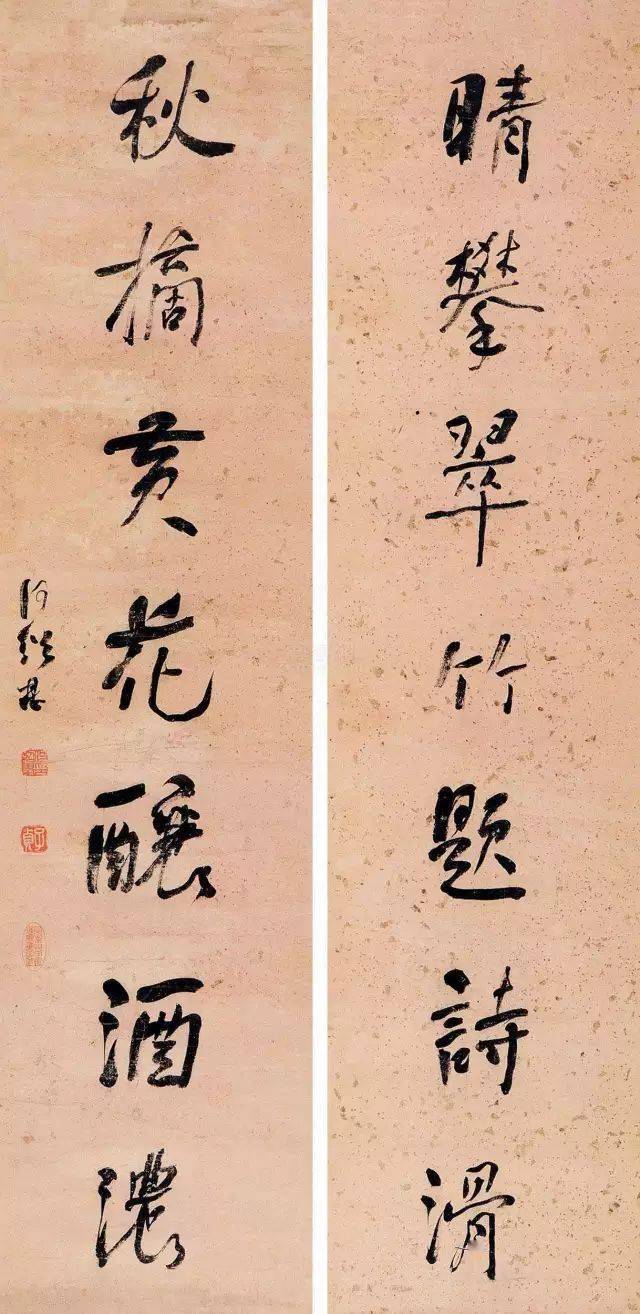 晴攀翠竹題詩滑
秋摘黄花釀酒濃
何紹基